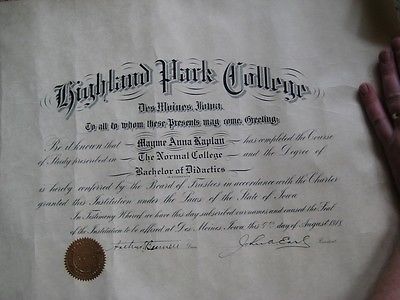 Highland Park College
Des Moines, Iowa.
To all to whom these Presents may come, Greeting:
Be it known that Mayme Anna Kaplan has completed the Course
of Study prescribed in The Normal College and the Degree of
Bachelor of Didactics
is hereby conferred by the Board of Trustees in accordance with the Charter
granted this Institution under the Laws of the State of Iowa
In Testimony Whereof we have this day subscribed our names and caused the Seal
of the Institution to be affixed at Des Moines, Iowa this day of August
Dean
President